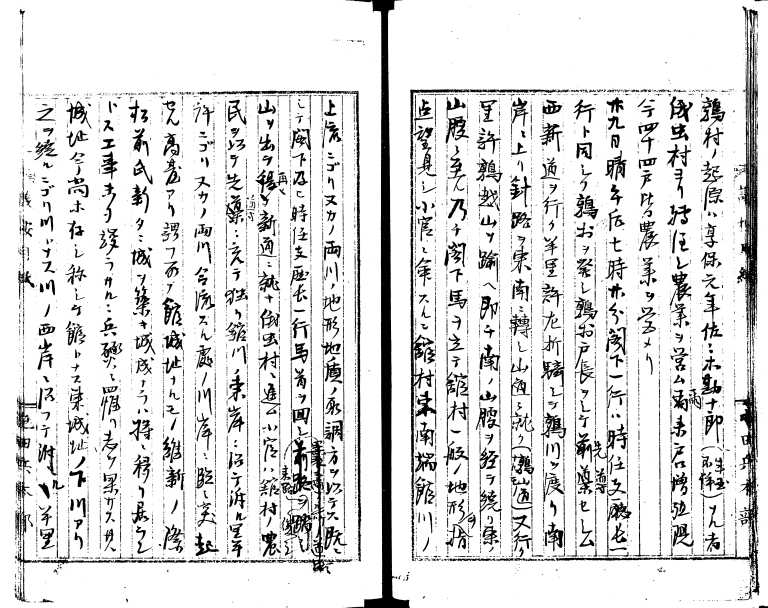 鶉村ノ起原ハ享保元年佐々木勘十郎ナル者
俄虫村ヨリ轉住シ農業ヲ営ム爾来戸口増殖現
今四十四戸皆農業ヲ営メリ
廿九日晴午后七時廿分閣下一行ハ時任支廳長一
行ト同シク鶉村ヲ発シ鶉村戸長ヲシテ前導セシム
西新道ヲ行ク半里許左折騎シテ鶉川ヲ渡リ南
岸ニ上リ針路ヲ東南ニ轉シ山道ニ就ク(鶉山道)又行ク
里許鶉越山ヲ踰ヘ即チ南ノ山腹ヲ経テ繞リ東ノ
山腹ニ至ル乃チ閣下馬ヲ立テ舘村一般ノ地形ヲ指
点望見シ小官ニ命スルニ舘村東南端舘川ノ
上流ニゴリ又カノ両川ノ地形地質ノ取調方ヲ以テス既ニ
シテ閣下及ヒ時任支廳長一行馬首ヲ回シ前路ヲ
山ヲ出テ再ヒ新道ニ就キ俄虫村ニ進ム小官ハ舘村ノ農
民ヲ以テ先導ニ充テ独リ舘川ノ東岸ニ沿テ溯ル里半
許ニゴリ又カノ両川合流スル處ノ川岸ニ臨ミ突起
セル高臺アリ謂フ所ノ舘城址ナルモノ維新ノ際
松前氏新タニ城ヲ築キ城成ラハ将ニ移リ居ラン
トス工事未タ竣ラサルニ兵燹ニ罹リ志ヲ果サス其
城址今尚ホ存シ称シテ舘トナス東城址ノ下川アリ
之ヲ繞ルニゴリ川トナス川ノ西岸ニ沿フテ溯ル半里